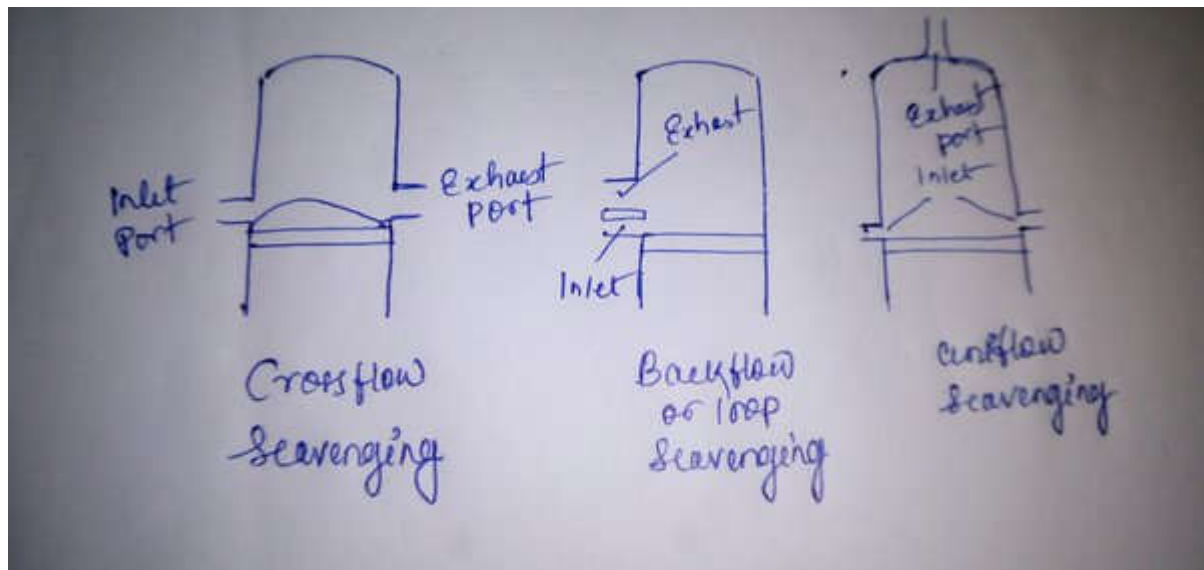 Inlet
Port
Exhaust
port
Crossflow
Scavenging
Exhast
Inlet
Backflow
or loop
Scavenging
Exhast
port
Inlet
Scavenging